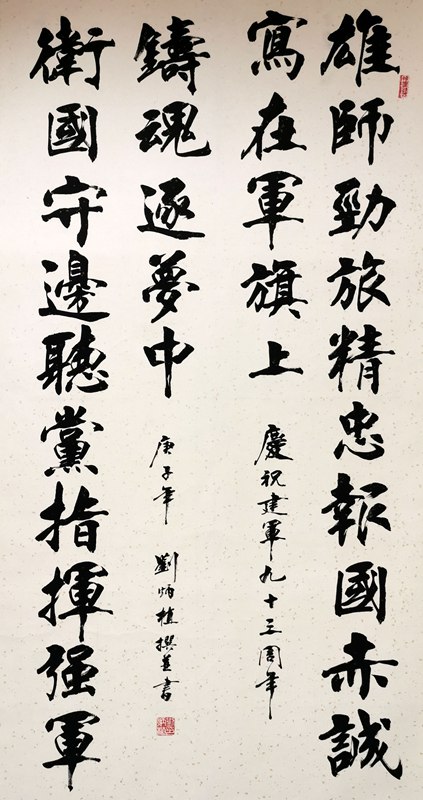 雄師勁旅精忠報國赤誠
寫在軍旗上
慶祝建軍九十三周年
衛國守邊聽黨指揮强軍
鑄魂逐夢中
庚子年 劉炳植撰並書